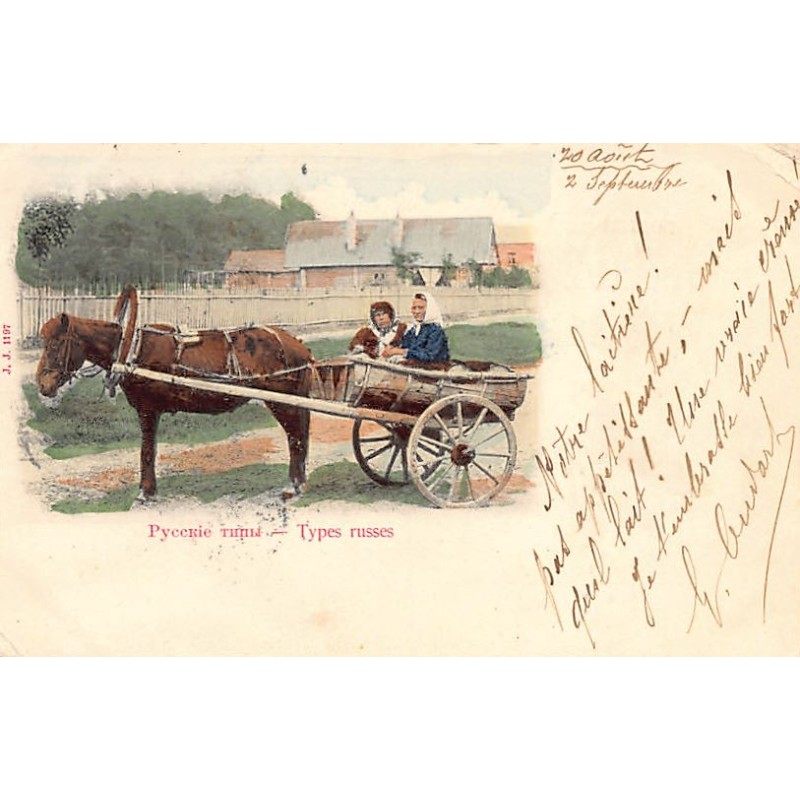 J. J. 1197
Русскіе типы — Types russes
20 Août
2 Septembre
Notre laitière !
pas appétissante, - mais
quel lait ! Une vraie crême !
Je t'embrasse bien fort